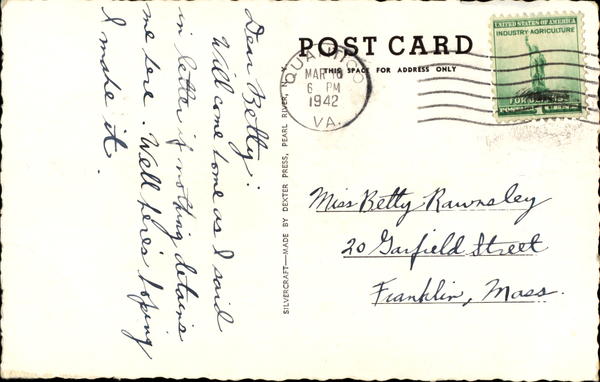 POST CARD
THIS SPACE FOR ADDRESS ONLY
QUANTICO
MAR 16
6 PM
1942
VA.
UNITED STATES OF AMERICA
INDUSTRY AGRICULTURE
FOR DEFENSE
SILVERCRAFT—MADE BY DEXTER PRESS, PEARL RIVER, N. Y.
Dear Betty:
Will come home as I said
in letter if nothing detains
me here. Well here's hoping
I make it.
Miss Betty Rawnsley
20 Garfield Street
Franklin, Mass.